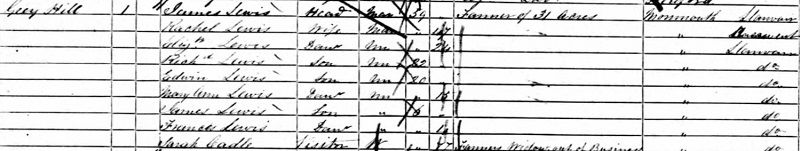 Hill 1 James Lewis Head Mar 59 Farmer of 31 Acres Monmouth Llanvair
Rachel Lewis Wife Mar 47 " "
Lewis Daur Un 24 " Llanvair
Richd Lewis Son Un 22 " " do
Edwin Lewis Son Un 20 " do
Mary Ann Lewis Daur Un " do
James Lewis Son " " do
Frances Lewis Daur " " do
Sarah Cadle Visitor W Farmers Widow out of Business " do